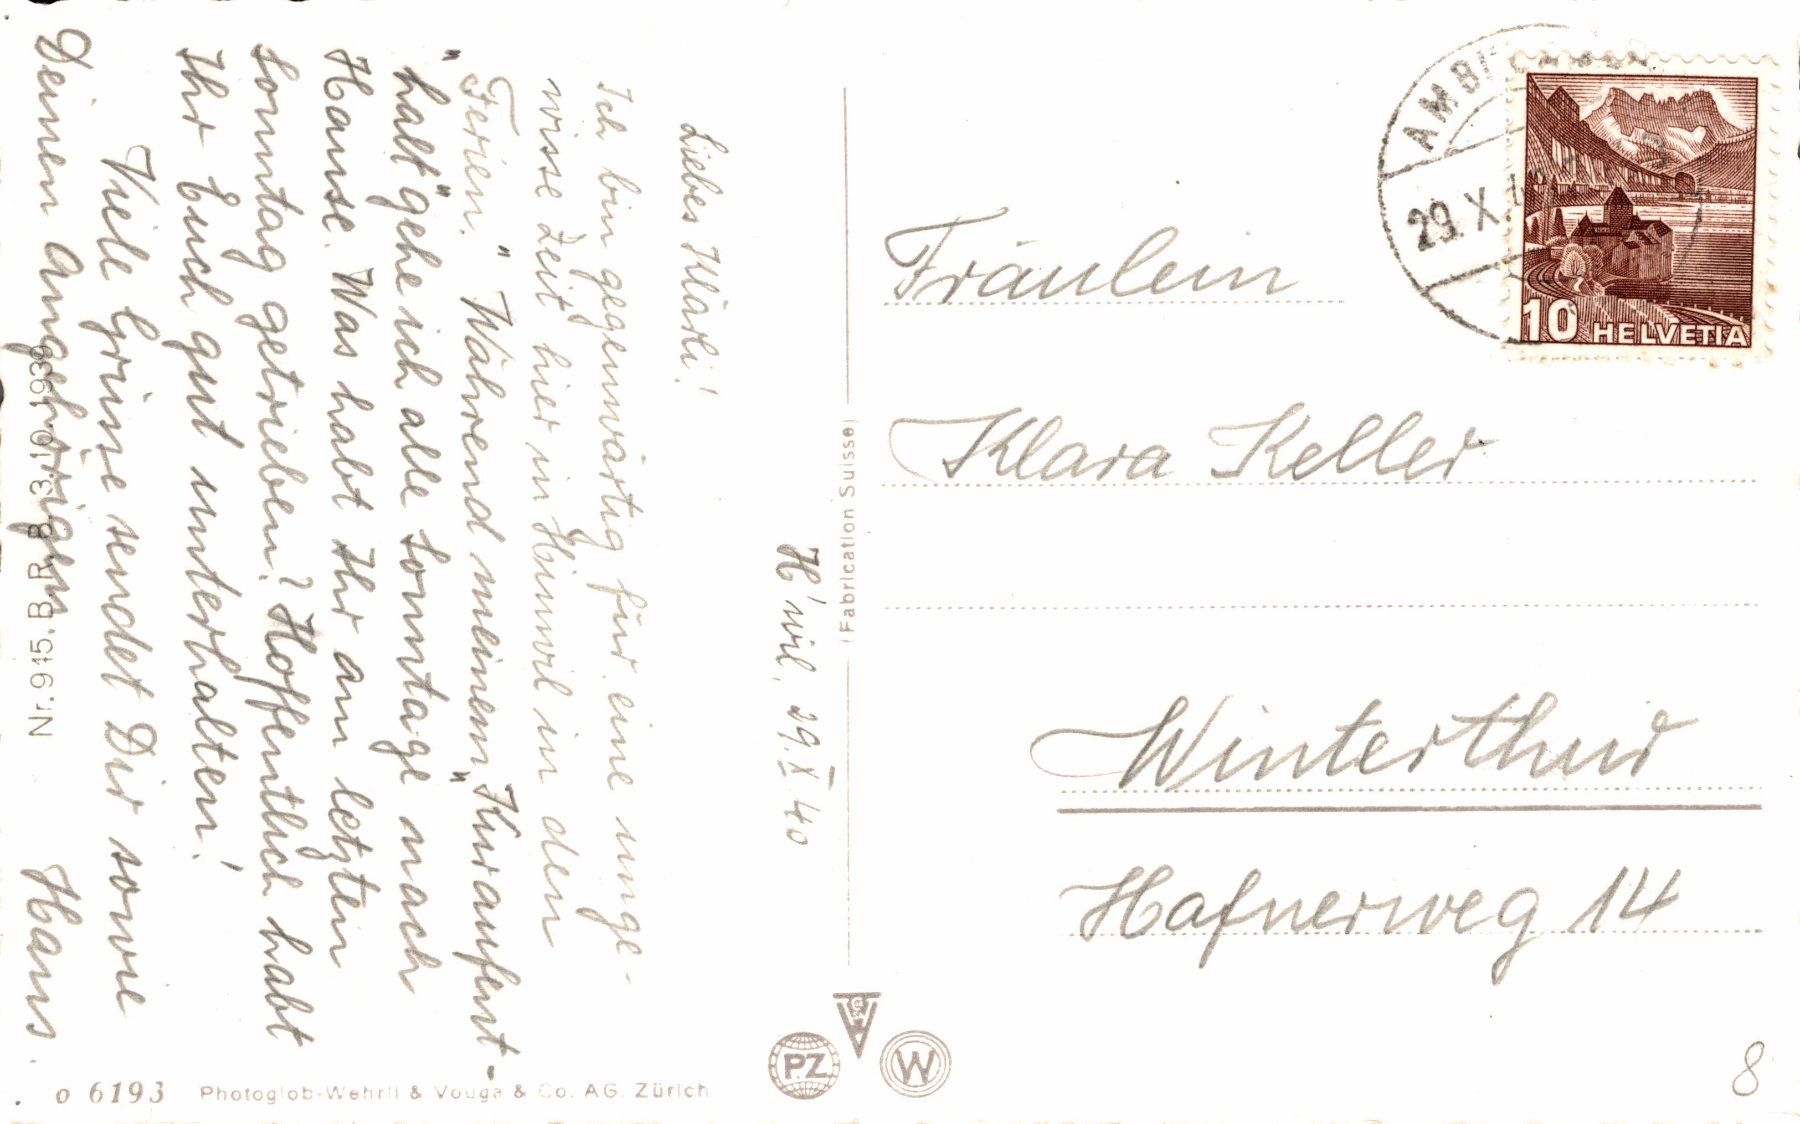 H'wil, 29. X 40
Liebes Klärli!
Ich bin gegenwärtig für eine unge-
wisse Zeit hier in Hinwil in den
"Ferien." Während meinem "Kuraufent-
halt" gehe ich alle Sonntage nach
Hause. Was habt Ihr am letzten
Sonntag getrieben? Hoffentlich habt
Ihr Euch gut unterhalten!
Viele Grüsse sendet Dir sowie
Deinen Angehörigen
Hans.
Nr. 915. B.R.B. 3.10.1939
o 6193 Photoglob-Wehrli & Vouga & Co. AG. Zürich
(Fabrication Suisse)
PZ
W
29. X.
10 HELVETIA
Fräulein
Klara Keller
Winterthur
Hafnerweg 14
8